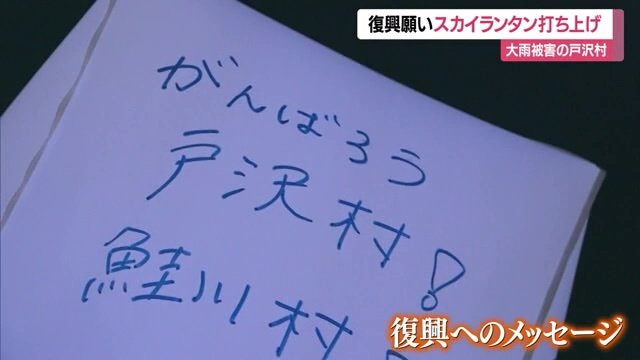 復興願いスカイランタン打ち上げ
大雨被害の戸沢村
がんばろう
戸沢村!
鮭川村!
復興へのメッセージ